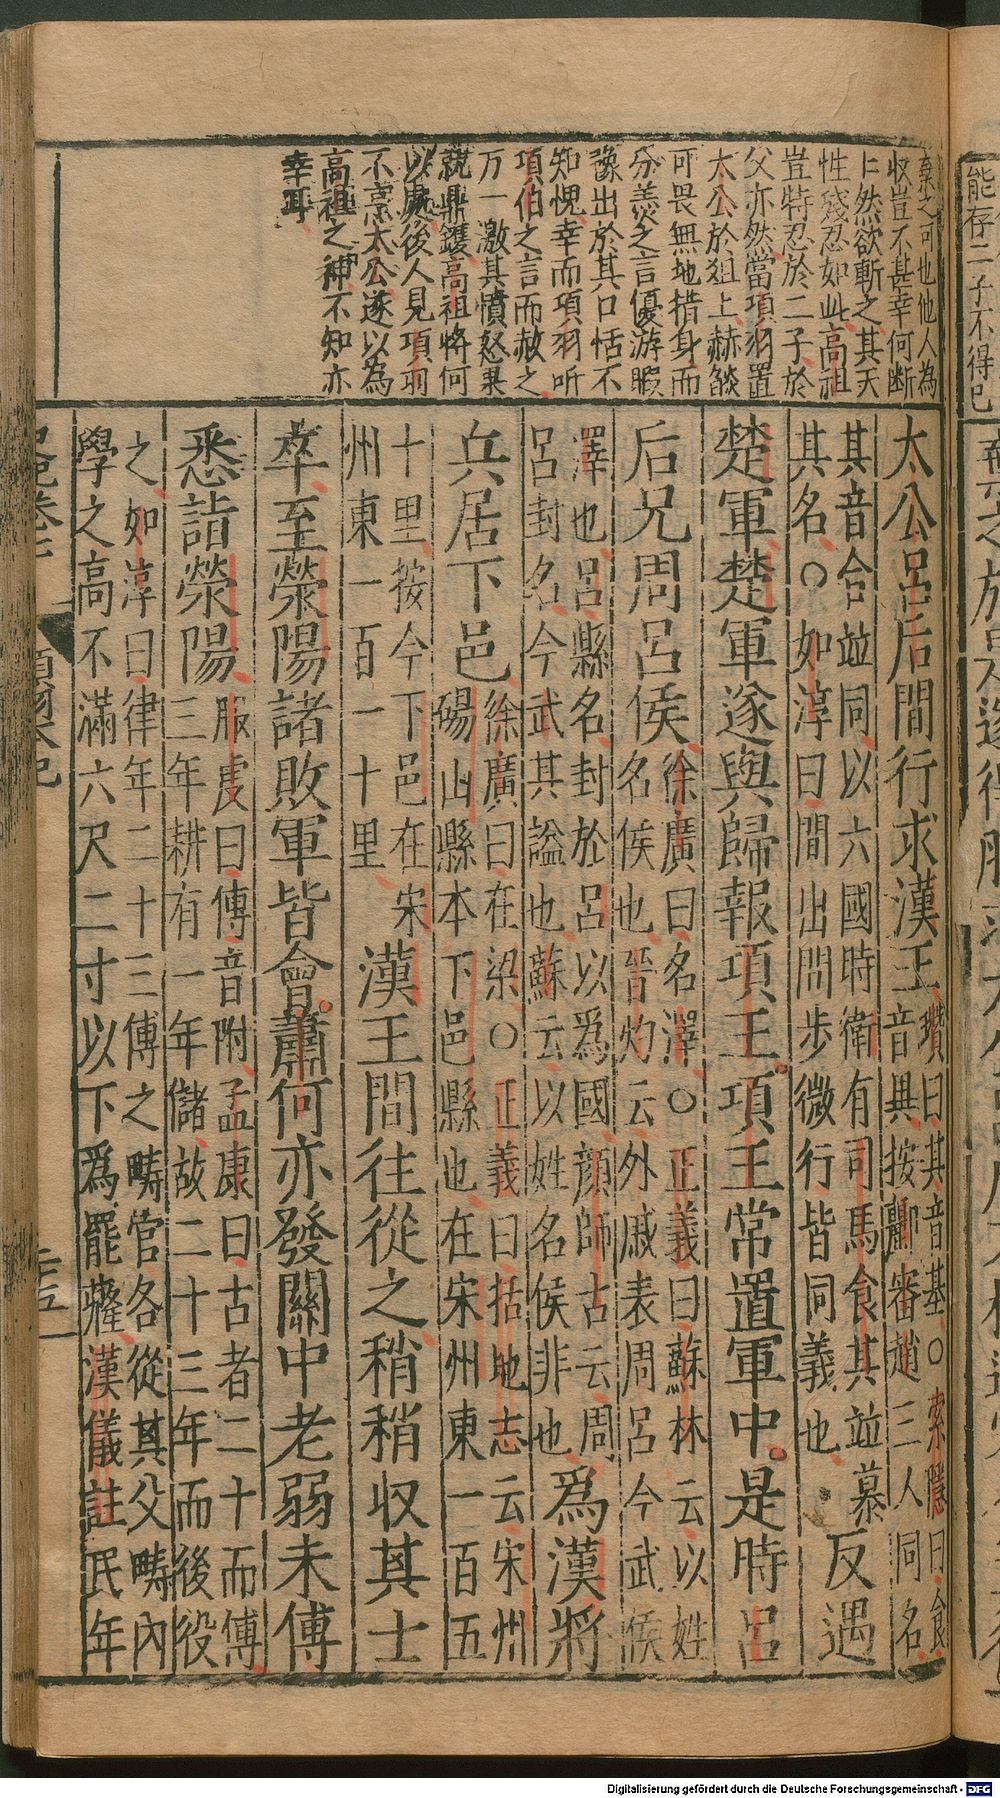 能存二子不得已
棄之可也他人為
收豈不甚幸何断
仁然欲斬之其天
性殘忍如此高祖
豈特忍於二子於
父亦然當項羽置
太公於俎上赫燄
可畏無地措身而
分羮之言優游暇
豫出於其口恬不
知愧幸而項羽听
項伯之言而赦之
万一激其憤怒果
就鼎鑊高祖將何
以處後人見項羽
不烹太公遂以為
高祖之神不知亦
幸耳
太公呂后間行求漢王
瓚曰其音基○索隱曰食
音異按酈審趙三人同名
其音合並同以六國時衛有司馬食其並慕
其名○如淳曰間出間步微行皆同義也
反遇
楚軍楚軍遂與歸報項王項王常置軍中是時呂
后兄周呂侯
徐廣曰名澤○正義曰蘇林云以姓
名侯也晉灼云外戚表周呂今武侯
澤也呂縣名封於呂以爲國顔師古云周
呂封名今武其謚也蘇云以姓名侯非也
爲漢將
兵居下邑
徐廣曰在梁○正義曰括地志云宋州
碭山縣本下邑縣也在宋州東一百五
十里按今下邑在宋
州東一百一十里
漢王間往從之稍稍収其士
卒至滎陽諸敗軍皆會蕭何亦發關中老弱未傅
悉詣滎陽
服虔曰傅音附孟康曰古者二十而傅
三年耕有一年儲故二十三年而後役
之如淳曰律年二十三傅之疇官各從其父疇內
學之高不滿六尺二寸以下爲罷癃漢儀註民年
Digitalisierung gefördert durch die Deutsche Forschungsgemeinschaft - DFG